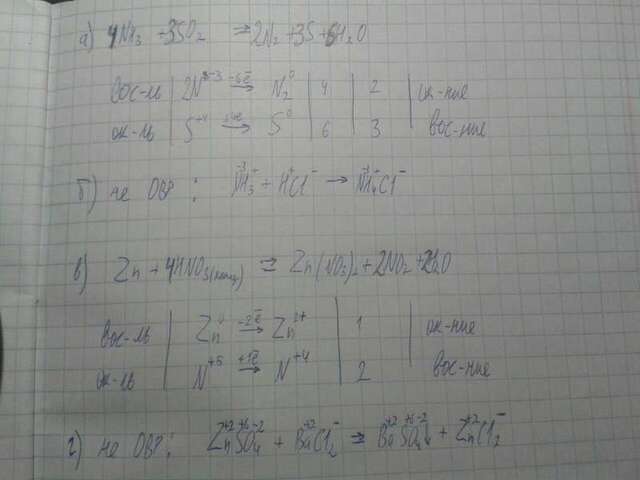 а) 4NH₃ + 3SO₂ = 2N₂ + 3S + 6H₂O
вос-ль | 2N⁻³ -6e̅→ N₂⁰ | 4 | 2 | ок-ние
ок-ль | S⁺⁴ +4e̅→ S⁰ | 6 | 3 | вос-ние
б) не ОВР: N⁻³H₃⁺ + H⁺Cl⁻ → N⁻³H₄⁺Cl⁻
в) Zn + 4HNO₃(конц) = Zn(NO₃)₂ + 2NO₂ + 2H₂O
вос-ль | Zn⁰ -2e̅→ Zn²⁺ | 1 | ок-ние
ок-ль | N⁺⁵ +1e̅→ N⁺⁴ | 2 | вос-ние
г) не ОВР: Zn⁺²S⁺⁶O₄⁻² + Ba⁺²Cl₂⁻ = Ba⁺²S⁺⁶O₄⁻²↓ + Zn⁺²Cl₂⁻